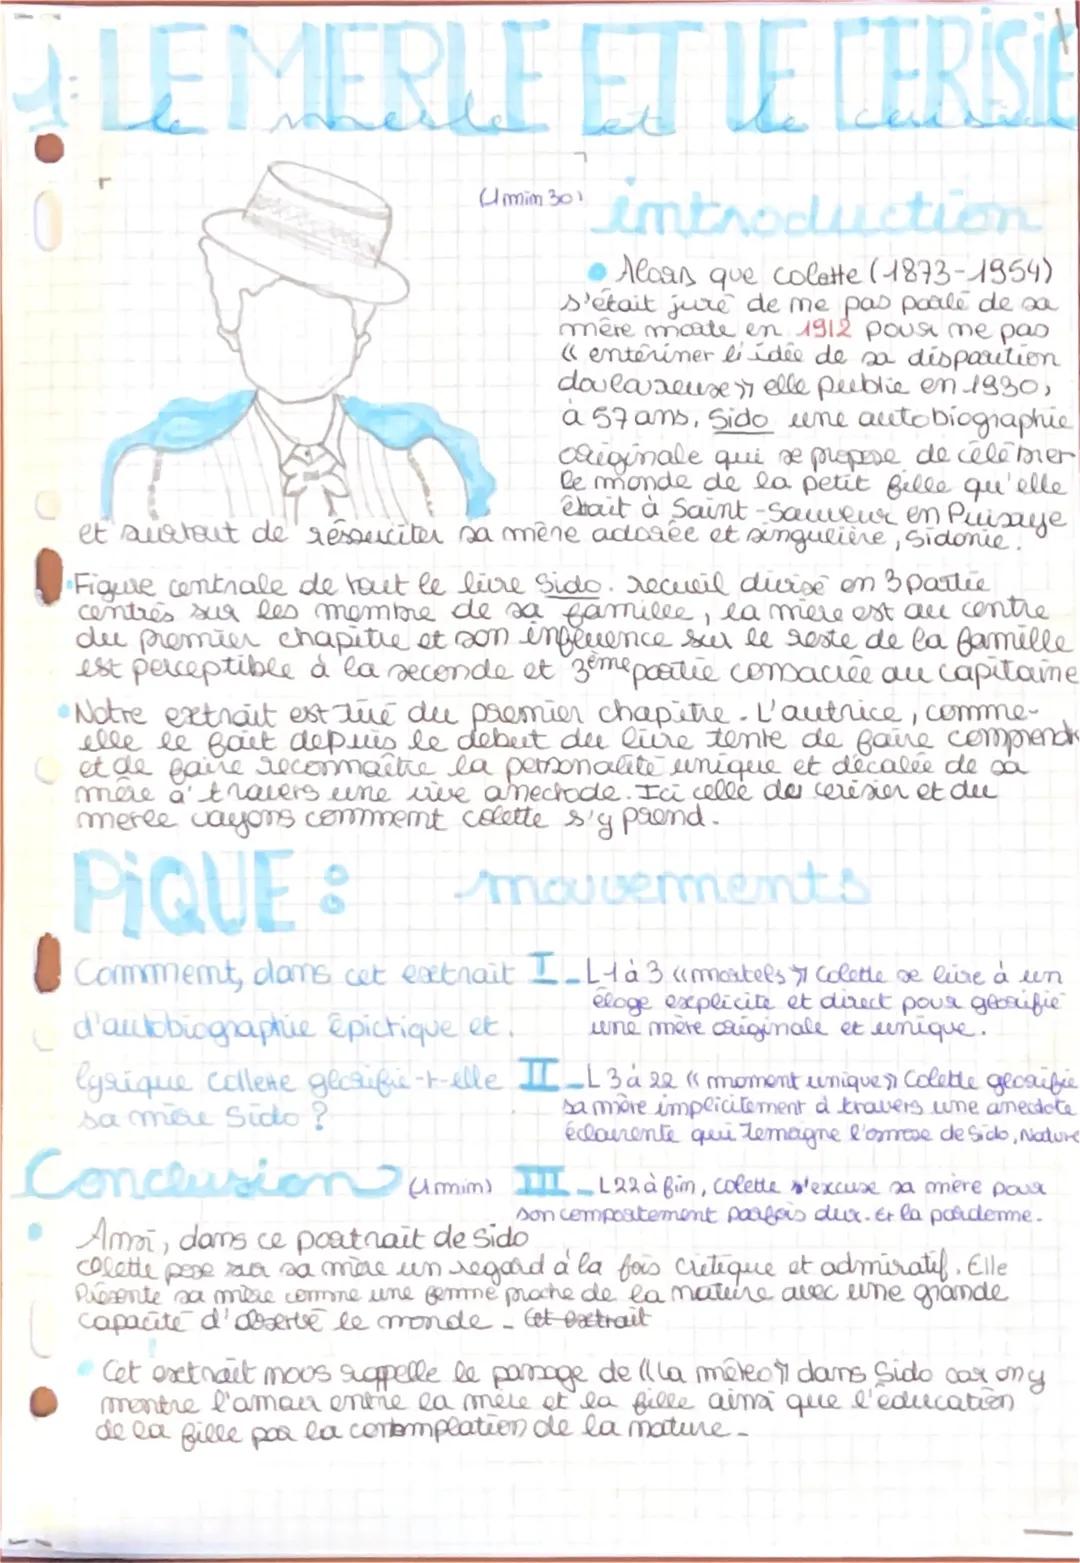 1: LE MERLE ET LE CERISIE
le merle et le cerisier
(1min 30)
introduction
Alors que colette (1873-1954)
s'était juré de ne pas parlé de sa
mère morte en 1912 pour ne pas
« entériner l'idée de sa disparition
douloureuse » elle publie en 1930,
à 57 ans, Sido une autobiographie
originale qui se propose de célébrer
le monde de la petit fille qu'elle
était à Saint-Sauveur en Puisaye
et surtout de résuciter sa mère adorée et singulière, Sidonie.
Figure centrale de tout le livre Sido. recueil divisé en 3 partie
centrés sur les membre de sa famille, la mère est au centre
du premier chapitre et son influence sur le reste de la famille
est perceptible à la seconde et 3ème partie consacrée au capitaine
Notre extrait est tiré du premier chapitre. L'autrice, comme-
elle le fait depuis le debut du livre tente de faire comprendr
et de faire reconnaître la personalité unique et décalée de sa
mère à travers une vive anectode. Ici celle du cerisier et du
merle voyons comment colette s'y prend.
PIQUE :
mouvements
Comment, dans cet extrait
d'autobiographie épictique et
lyrique collette glorifie-t-elle
sa mère Sido ?
I - L1 à 3 « mortels » Colette se livre à un
éloge explicite et direct pour glorifié
une mère originale et unique.
II - L3 à 22 « moment unique » Colette glorifie
sa mère implicitement à travers une anecdote
éclairente qui temoigne l'osmose de Sido, Nature
III - L22 à fin, colette s'excuse sa mère pour
son comportement parfois dur. Et la pardonne.
Conclusion (1min)
Ainsi, dans ce portrait de Sido
colette pose sur sa mère un regard à la fois critique et admiratif. Elle
Présente sa mère comme une femme proche de la nature avec une grande
capacité d'observé le monde - Cet extrait
Cet extrait nous rappelle le passage de « la météo » dans Sido car on y
montre l'amour entre la mère et la fille ainsi que l'éducation
de la fille par la contemplation de la nature -